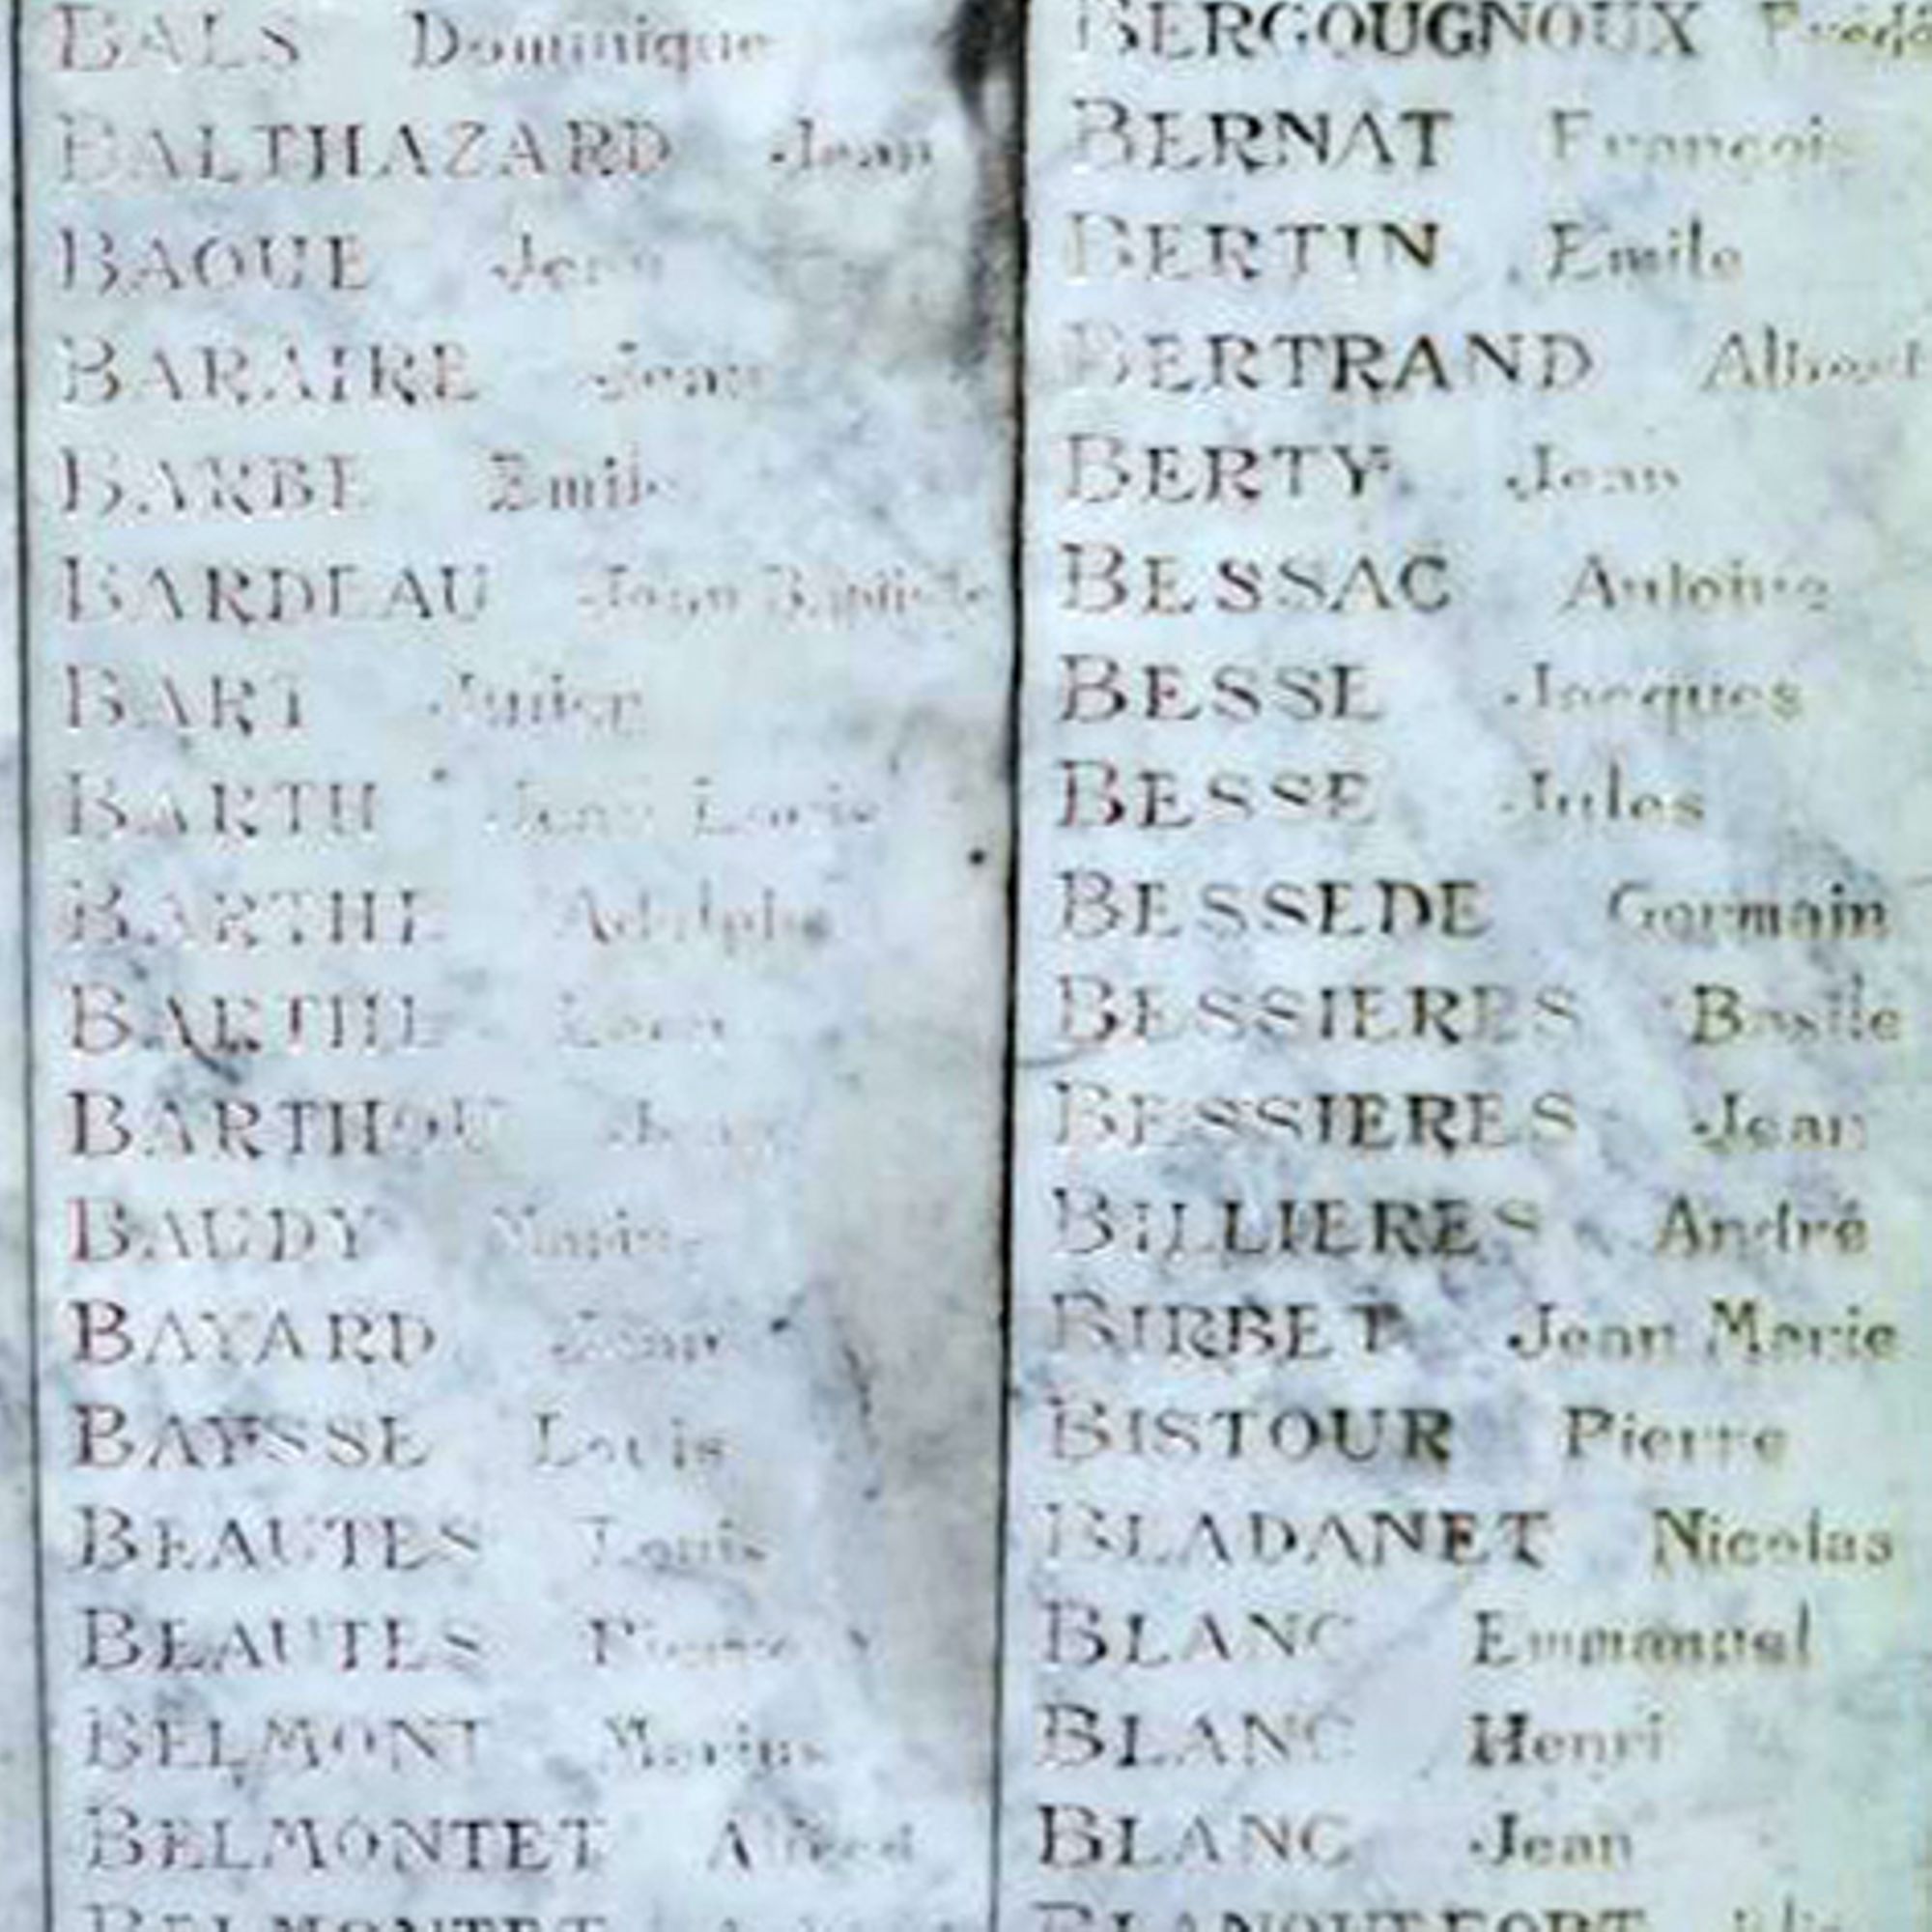 BALS Dominique
BALTHAZARD Jean
BAOUE Jean
BARAIRE Jean
BARBE Emile
BARDEAU Jean Baptiste
BART Junien
BARTH Jean Louis
BARTHE Adolphe
BARTHE
BARTHOU Jean
BAUDY
BAYARD Jean
BAYSSE Louis
BEAUTES Louis
BEAUTES Pierre
BELMONT Marius
BELMONTET Alfred
BELMONTET
BERGOUGNOUX
BERNAT François
BERTIN Emile
BERTRAND Albert
BERTY Jean
BESSAC Antoine
BESSE Jacques
BESSE Jules
BESSEDE Germain
BESSIERES Basile
BESSIERES Jean
BILLIERES André
BIRBET Jean Marie
BISTOUR Pierre
BLADANET Nicolas
BLANC Emmanuel
BLANC Henri
BLANC Jean
BLANQUEFORT